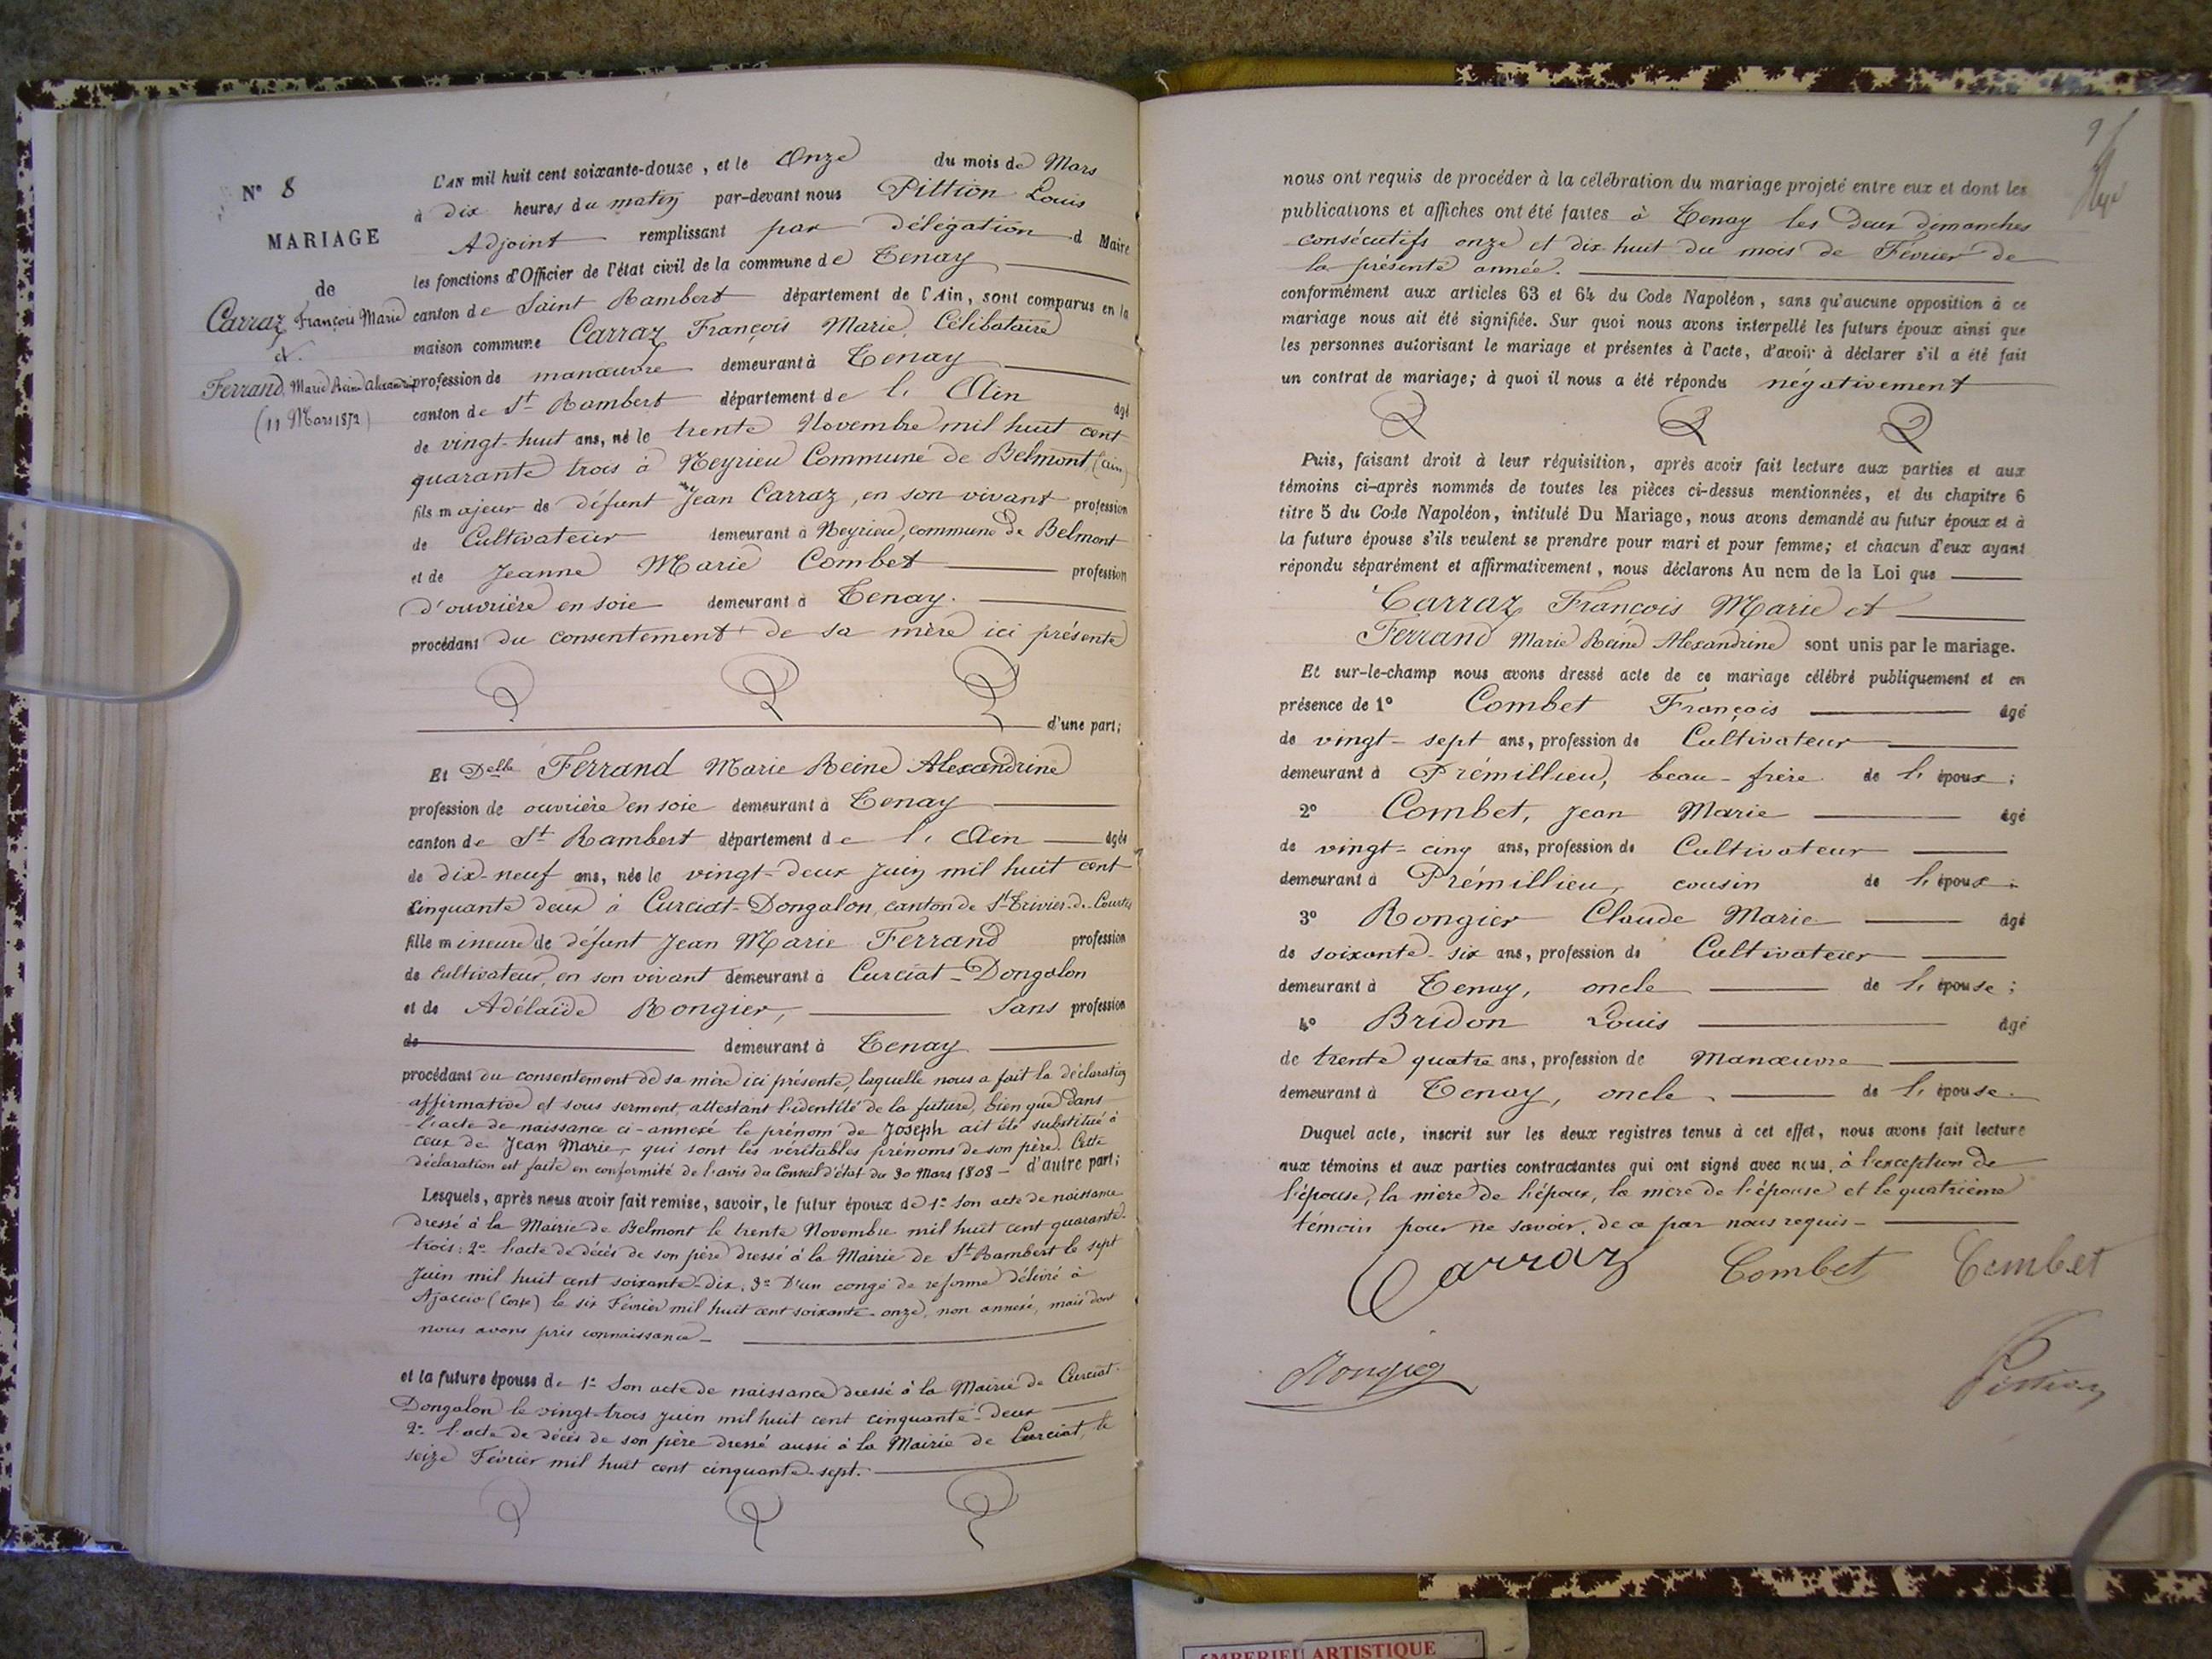 N° 8
MARIAGE
de
Carraz François Marie
&
Ferrand Marie Reine Alexandrine
(11 Mars 1872)
L'AN mil huit cent soixante-douze, et le Onze du mois de Mars
à dix heures du matin par-devant nous Pittion Louis
Adjoint remplissant par délégation d Maire
les fonctions d'Officier de l'état civil de la commune de Tenay
canton de Saint Rambert département de l'Ain, sont comparus en la
maison commune Carraz François Marie, Célibataire
profession de manœuvre demeurant à Tenay
canton de St Rambert département de l'Ain âgé
de vingt-huit ans, né le trente Novembre mil huit cent
quarante trois à Neyrieu Commune de Belmont (ain)
fils majeur de défunt Jean Carraz, en son vivant profession
de Cultivateur demeurant à Neyrieu, commune de Belmont
et de Jeanne Marie Combet profession
d'ouvrière en soie demeurant à Tenay.
procédant du consentement de sa mère ici présente
d'une part;
Et Delle Ferrand Marie Reine Alexandrine
profession de ouvrière en soie demeurant à Tenay
canton de St Rambert département de l'Ain âgée
de dix-neuf ans, née le vingt-deux juin mil huit cent
cinquante deux à Curciat-Dongalon, canton de St Trivier-de-Courtes
fille mineure de défunt Jean Marie Ferrand profession
de cultivateur, en son vivant demeurant à Curciat-Dongalon
et de Adélaïde Rongier, Sans profession
de demeurant à Tenay
procédant du consentement de sa mère ici présente, laquelle nous a fait la déclaration
affirmative et sous serment, attestant l'identité de la future, bien que dans
l'acte de naissance ci-annexé le prénom de Joseph ait été substitué à
ceux de Jean Marie, qui sont les véritables prénoms de son père. Cette
déclaration est faite en conformité de l'avis du Conseil d'état du 30 Mars 1808 - d'autre part;
Lesquels, après nous avoir fait remise, savoir, le futur époux de 1° Son acte de naissance
dressé à la Mairie de Belmont le trente Novembre mil huit cent quarante-
trois: 2° l'acte de décès de son père dressé à la Mairie de St Rambert le sept
Juin mil huit cent soixante-dix. 3° D'un congé de réforme délivré à
Ajaccio (Corse) le six Février mil huit cent soixante-onze, non annexé, mais dont
nous avons pris connaissance -
et la future épouse de 1° Son acte de naissance dressé à la Mairie de Curciat-
Dongalon le vingt-trois juin mil huit cent cinquante-deux
2° l'acte de décès de son père dressé aussi à la Mairie de Curciat, le
seize Février mil huit cent cinquante-sept.
nous ont requis de procéder à la célébration du mariage projeté entre eux et dont les
publications et affiches ont été faites à Tenay les deux dimanches
consécutifs onze et dix-huit du mois de Février de
la présente année.
conformément aux articles 63 et 64 du Code Napoléon, sans qu'aucune opposition à ce
mariage nous ait été signifiée. Sur quoi nous avons interpellé les futurs époux ainsi que
les personnes autorisant le mariage et présentes à l'acte, d'avoir à déclarer s'il a été fait
un contrat de mariage; à quoi il nous a été répondu négativement
Puis, faisant droit à leur réquisition, après avoir fait lecture aux parties et aux
témoins ci-après nommés de toutes les pièces ci-dessus mentionnées, et du chapitre 6
titre 5 du Code Napoléon, intitulé Du Mariage, nous avons demandé au futur époux et à
la future épouse s'ils veulent se prendre pour mari et pour femme; et chacun d'eux ayant
répondu séparément et affirmativement, nous déclarons Au nom de la Loi que
Carraz François Marie et
Ferrand Marie Reine Alexandrine sont unis par le mariage.
Et sur-le-champ nous avons dressé acte de ce mariage célébré publiquement et en
présence de 1° Combet François âgé
de vingt-sept ans, profession de Cultivateur
demeurant à Prémillieu, beau-frère de l'époux;
2° Combet, Jean Marie âgé
de vingt-cinq ans, profession de Cultivateur
demeurant à Prémillieu, cousin de l'époux;
3° Rongier Claude Marie âgé
de soixante-six ans, profession de Cultivateur
demeurant à Tenay, oncle de l'épouse;
4° Bridon Louis âgé
de trente quatre ans, profession de Manœuvre
demeurant à Tenay, oncle de l'épouse.
Duquel acte, inscrit sur les deux registres tenus à cet effet, nous avons fait lecture
aux témoins et aux parties contractantes qui ont signé avec nous, à l'exception de
l'épouse, la mère de l'époux, la mère de l'épouse et le quatrième
témoin pour ne savoir, de ce par nous requis -
Carraz Combet Combet
Rongier Pittion
AMBERIEU ARTISTIQUE